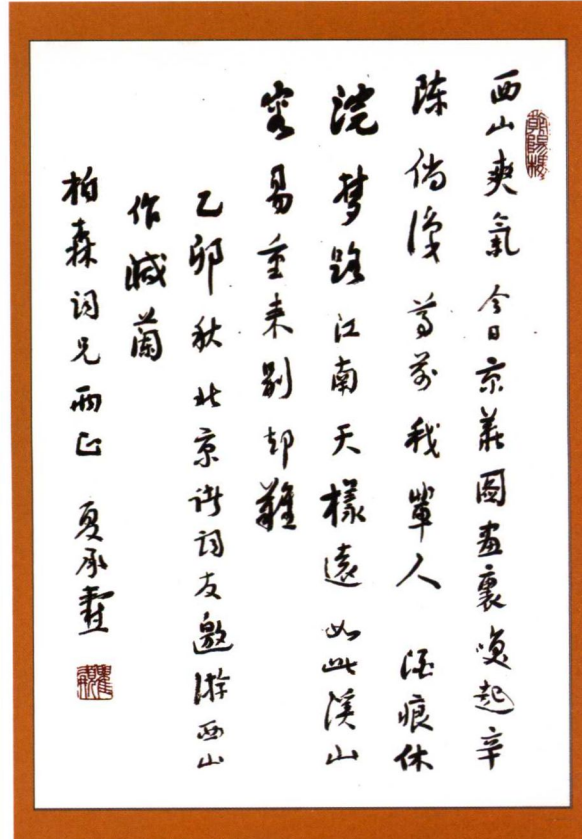 西山爽氣 今日京華圖畫裏喚起辛
陈倘復尊前我輩人 酒痕休
浣夢路江南天樣遠 如此溪山
容易重来別却難
乙卯秋 北京諸詞友邀游西山
作減蘭
柏森詞兄兩正 夏承燾